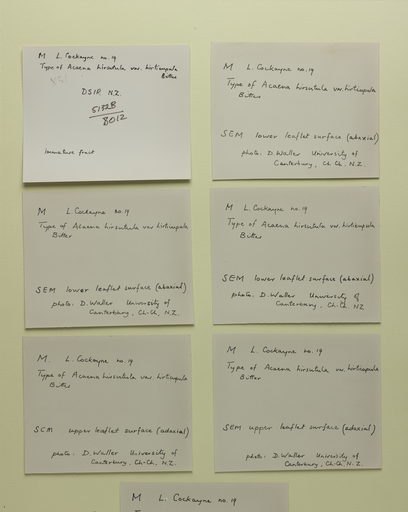 M L. Cockayne no. 19
Type of Acaena hirsutula var. hirticupula
Bitter
DSIR N.Z.
5132B
8012
Immature fruit
M L. Cockayne no. 19
Type of Acaena hirsutula var. hirticupula
Bitter
SEM lower leaflet surface (abaxial)
photo: D. Waller University of
Canterbury, Ch. Ch. N.Z.
M L. Cockayne no. 19
Type of Acaena hirsutula var. hirticupula
Bitter
SEM lower leaflet surface (abaxial)
photo: D. Waller University of
Canterbury, Ch-Ch. N.Z.
M L. Cockayne no. 19
Type of Acaena hirsutula var. hirticupula
Bitter
SEM lower leaflet surface (abaxial)
photo: D. Waller University of
Canterbury, Ch. Ch. NZ
M. L. Cockayne no. 19
Type of Acaena hirsutula var. hirticupula
Bitter
SEM upper leaflet surface (adaxial)
photo: D. Waller University of
Canterbury, Ch-Ch, N.Z.
M L. Cockayne no. 19
Type of Acaena hirsutula var. hirticupula
Bitter
SEM upper leaflet surface (adaxial)
photo: D. Waller University of
Canterbury, Ch. Ch. N.Z.
M L. Cockayne no. 19